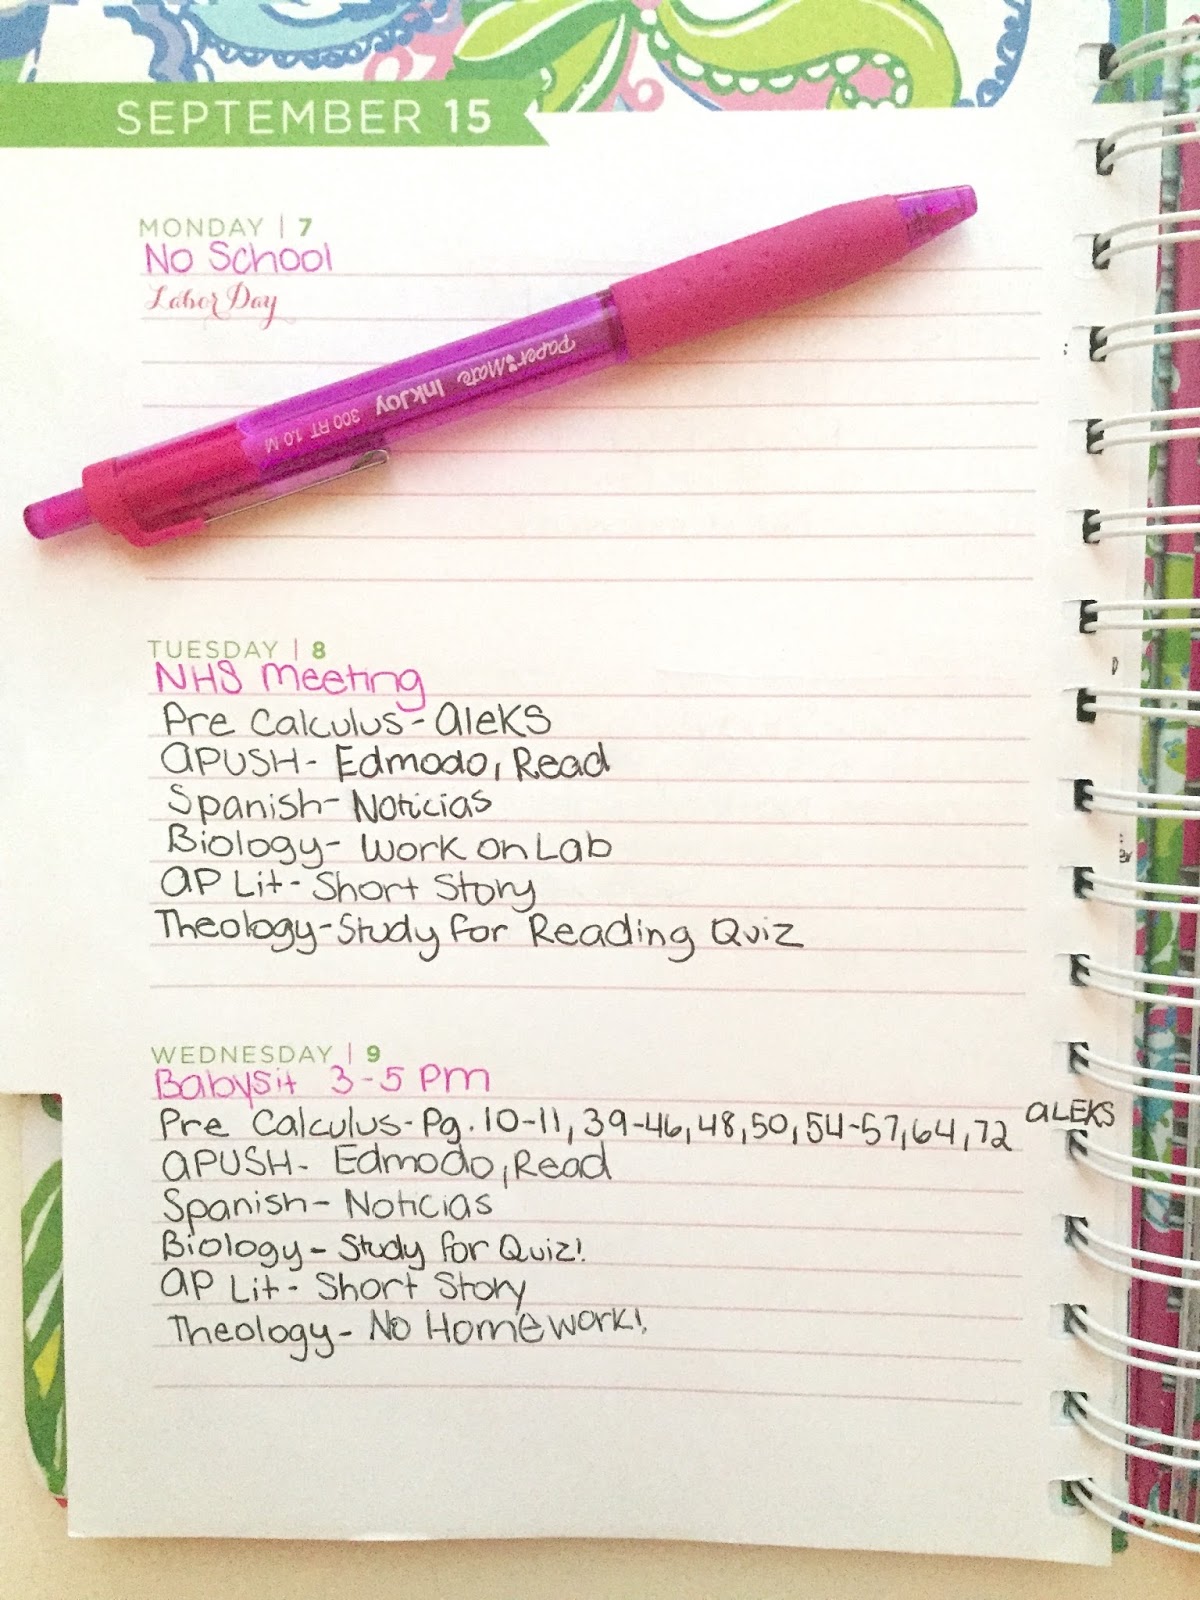 SEPTEMBER 15
MONDAY | 7
No School
Labor Day
paper mate InkJoy 300 RT 1.0 M
TUESDAY | 8
NHS Meeting
Pre Calculus - aleks
APUSH - Edmodo, Read
Spanish - Noticias
Biology - Work on Lab
AP Lit - Short Story
Theology - Study for Reading Quiz
WEDNESDAY | 9
Babysit 3-5 pm
Pre Calculus - Pg. 10-11, 39-46, 48, 50, 54-57, 64, 72 ALEKS
APUSH - Edmodo, Read
Spanish - Noticias
Biology - Study for Quiz!
AP Lit - Short Story
Theology - No Homework!